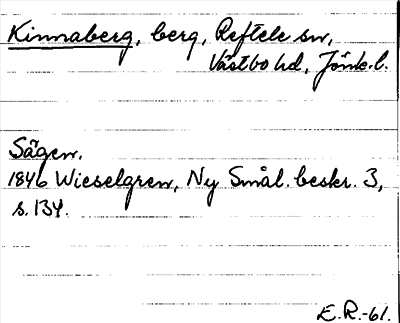 Kinnaberg, berg, Reftele sn,
Västbo hd, Jönk.l.
Sägen.
1846 Wieselgren, Ny Smål. beskr. 3,
s. 134.
E.R.-61.